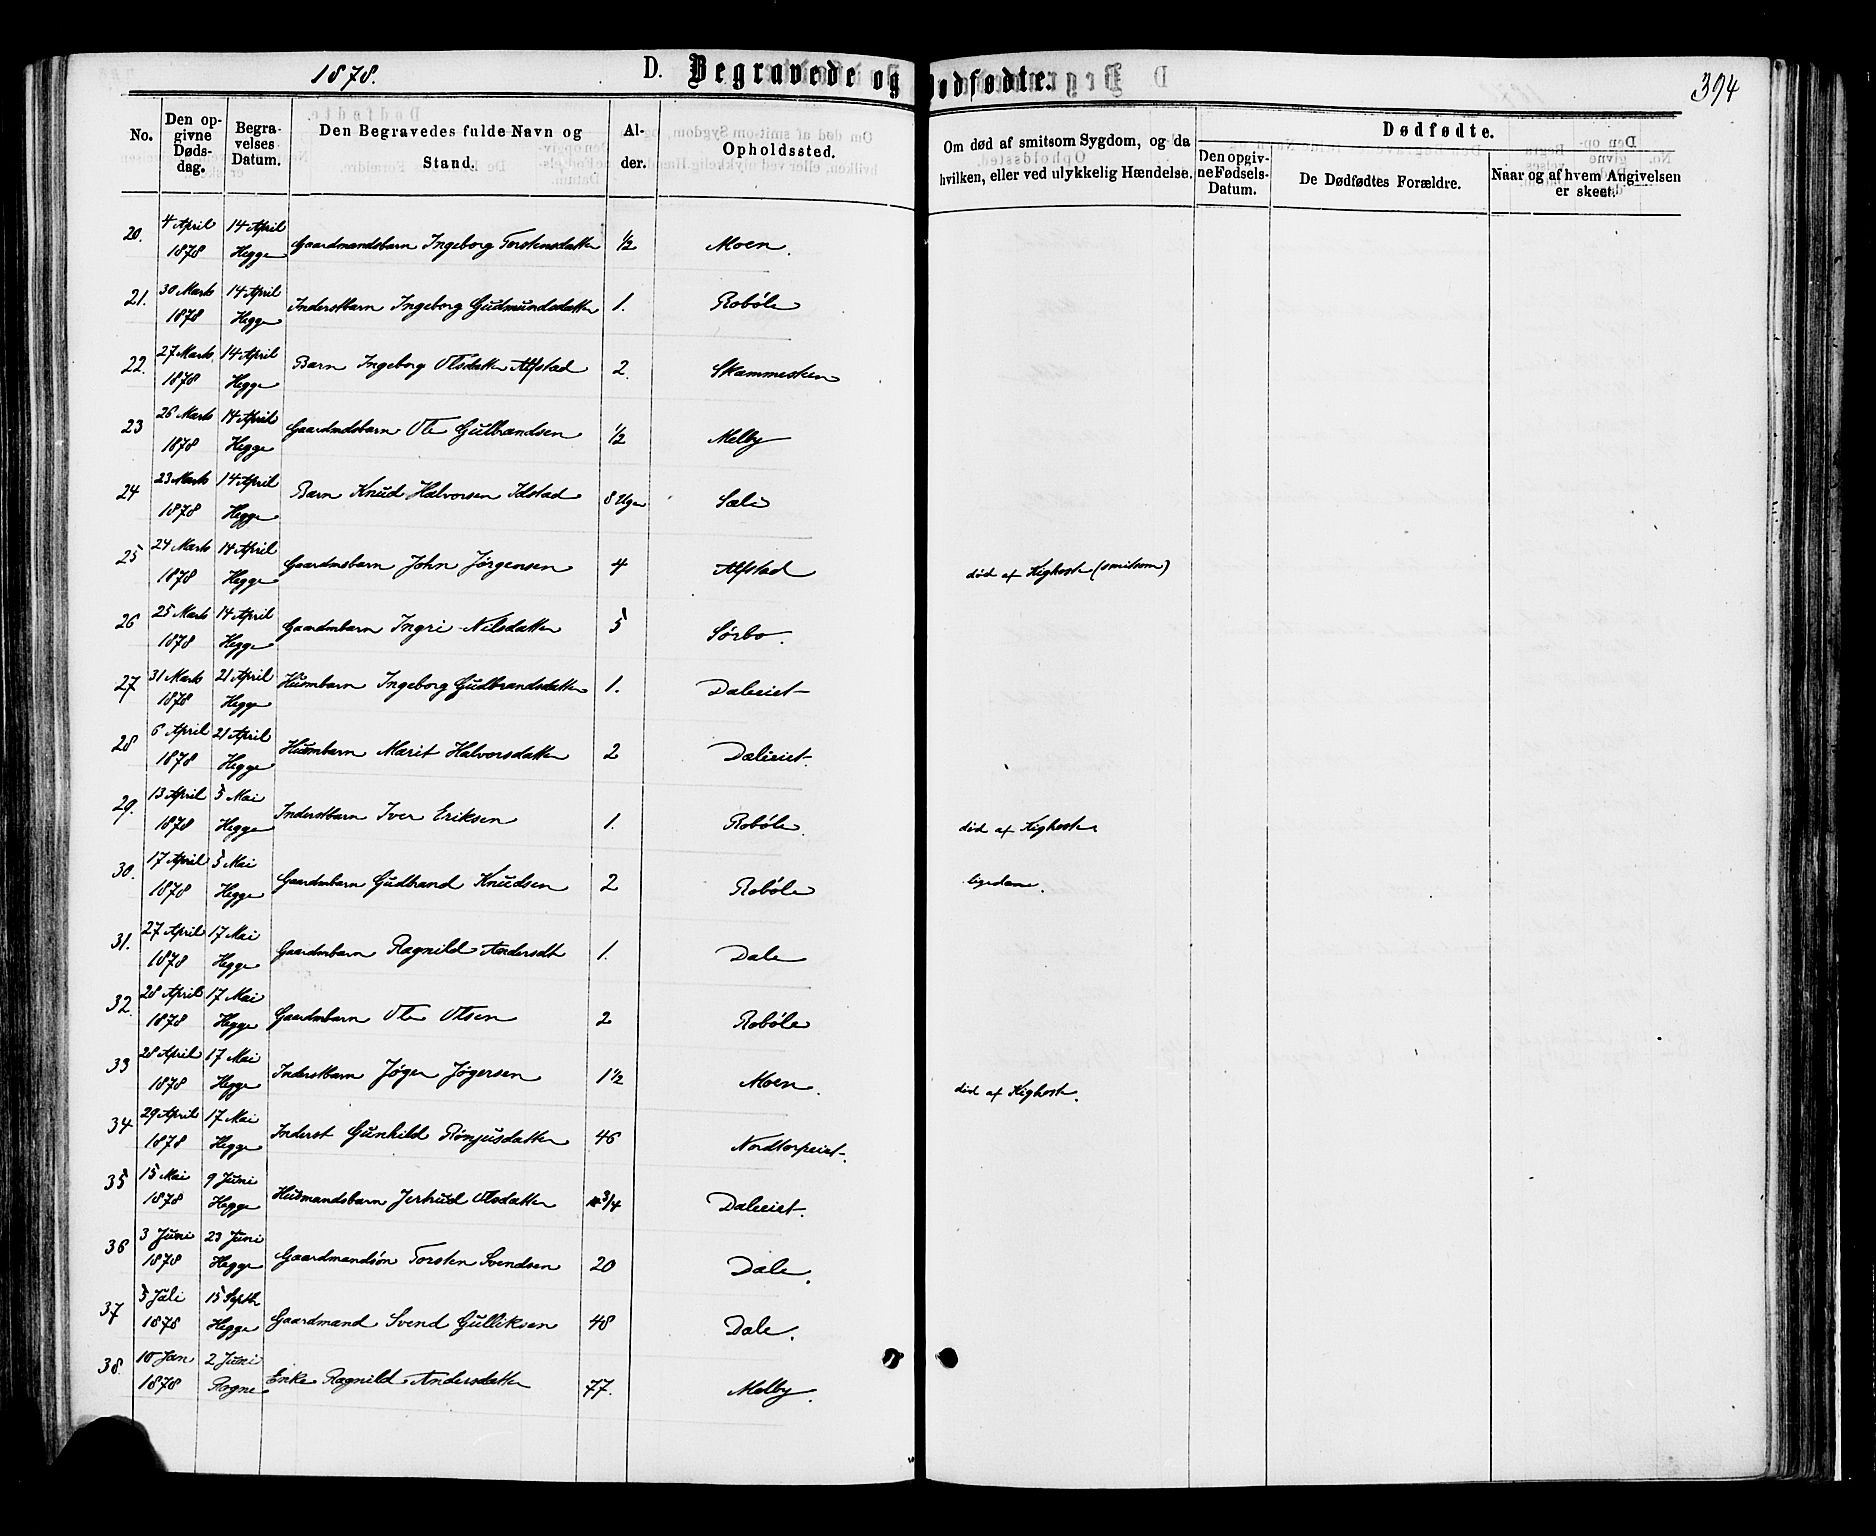 1878. D. Begravede og Dødfødte. 394
No.
Den opgivne Dødsdag.
Begravelses Datum.
Den Begravedes fulde Navn og Stand.
Alder.
Opholdssted.
Om død af smitsom Sygdom, og da hvilken, eller ved ulykkelig Hændelse.
Dødfødte.
Den opgivne Fødsels-Datum.
De Dødfødtes Forældre.
Naar og af hvem Angivelsen er skeet.
20. 4 April 1878 14 April Hegge Gaardmandsbarn Ingeborg Torstensdatter 1/2 Moen.
21. 30 Marts 1878 14 April Hegge Inderstbarn Ingeborg Gudmundsdatter 1. Robøle
22. 27 Marts 1878 14 April Hegge Barn Ingeborg Olsdatter Alfstad 2. Skammesteen
23 26 Marts 1878 14 April Hegge Gaardmdsbarn Ole Gulbrandsen 1/2 Melby
24 23 Marts 1878 14 April Hegge Barn Knud Halvorsen Idstad 8 Uger Sæli
25 24 Marts 1878 14 April Hegge Gaardmsbarn John Jørgensen 4 Alfstad død af Kighoste (smitsom)
26 25 Marts 1878 14 April Hegge Gaardmbarn Ingri Nilsdatter 5 Sørbo.
27 31 Marts 1878 21 April Hegge Husmbarn Ingeborg Gudbrandsdatter 1. Daleiet
28 6 April 1878 21 April Hegge Husmbarn Marit Halvorsdatter 2 Daleiet.
29. 13 April 1878 5 Mai Hegge Inderstbarn Iver Eriksen 1. Robøle. død af Kighoste
30. 17 April 1878 5 Mai Hegge Gaardmbarn Gudbrand Knudsen 2 Robøle ligedane.
31. 27 April 1878 17 Mai Hegge Gaardmbarn Ragnild Andersdt 1. Dale
32. 28 April 1878 17 Mai Hegge Gaardmbarn Ole Olsen 2 Robøle
33 28 April 1878 17 Mai Hegge Inderstbarn Jøger Jøgersen 1 1/2 Moen. død af Kighost.
34 29 April 1878 17 Mai Hegge Inderst Gunhild Rønjusdatter 46 Nordtorpeiet.
35 15 Mai 1878 9 Juni Hegge Husmandsbarn Jertrud Olsdatter 3/4 Daleeiet.
36 3 Juni 1878 23 Juni Hegge Gaardmandsøn Torsten Svendsen 20 Dale.
37 5 Juli 1878 15 Septb Hegge Gaardmand Svend Gulliksen 48 Dale.
38. 10 Jan 1878 2 Juni Rogne Enke Ragnild Andersdatter 77. Melby.